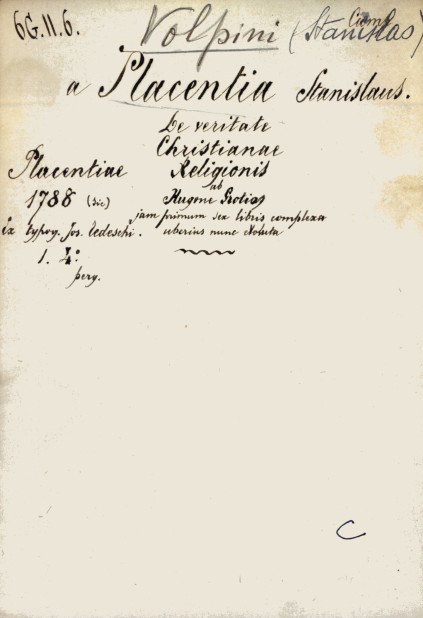 6G.II.6.
Volpini (Stanislas)
a Placentia Stanislaus.
De veritate
Christianae
Placentiae Religionis
1788 (sic) ab
Hugone Grotio
jam primum sex libris complexa
Ex typog. Jos. Tedeschi. uberius nunc
1. 4:º
perg.
C